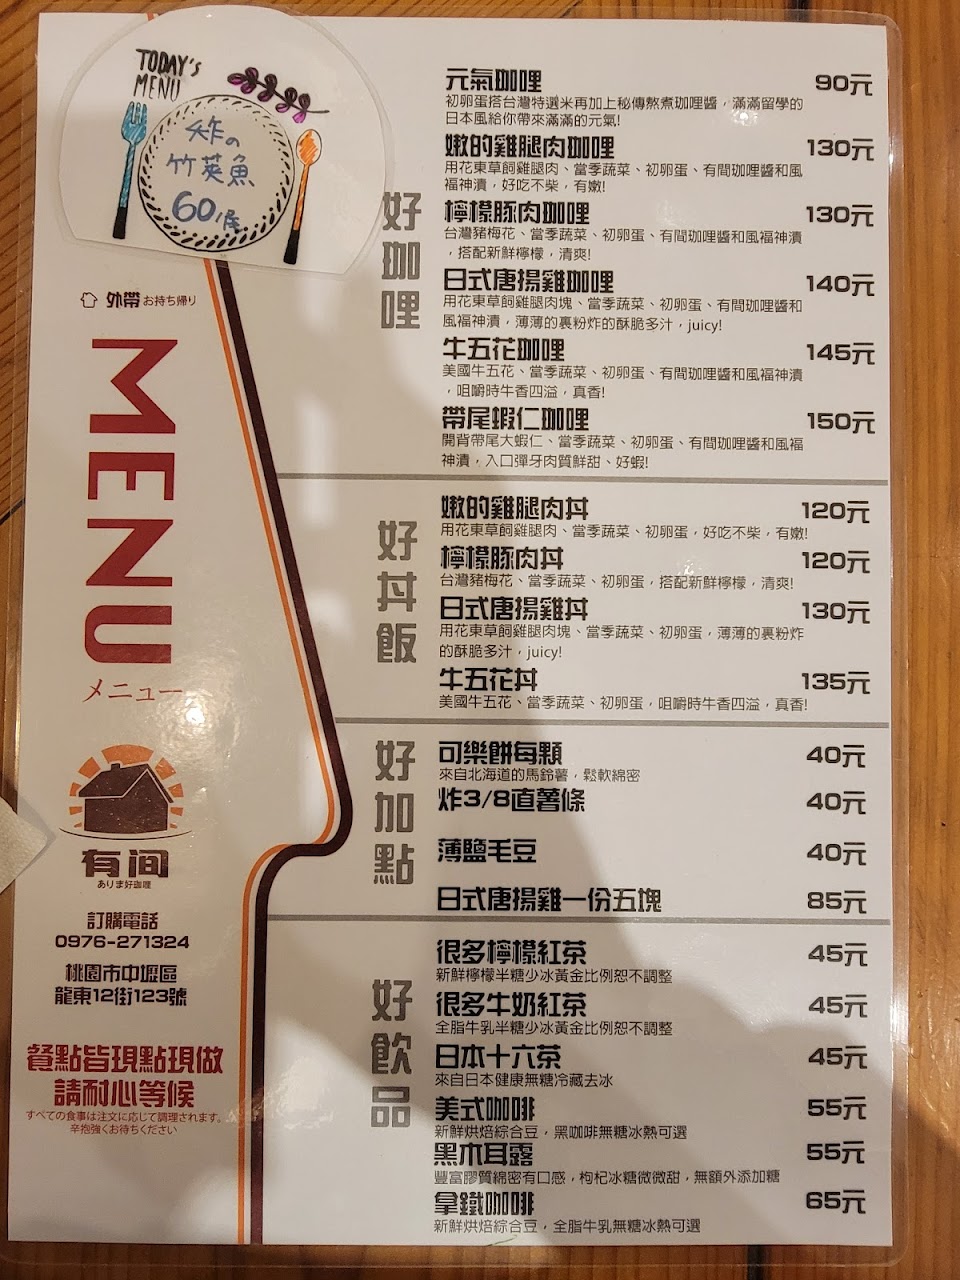 TODAY'S
MENU
炸の
竹筴魚
60/尾
外帶 お持ち帰り
MENU
メニュー
有间
ありま好咖哩
訂購電話
0976-271324
桃園市中壢區
龍東12街123號
餐點皆現點現做
請耐心等候
すべての食事は注文に応じて調理されます。
辛抱強くお待ちください
好咖哩
元氣咖哩 90元
初卵蛋搭台灣特選米再加上秘傳熬煮咖哩醬，滿滿留學的
日本風給你帶來滿滿的元氣!
嫩的雞腿肉咖哩 130元
用花東草飼雞腿肉、當季蔬菜、初卵蛋、有間咖哩醬和風
福神漬，好吃不柴，有嫩!
檸檬豚肉咖哩 130元
台灣豬梅花、當季蔬菜、初卵蛋、有間咖哩醬和風福神漬
，搭配新鮮檸檬，清爽!
日式唐揚雞咖哩 140元
用花東草飼雞腿肉塊、當季蔬菜、初卵蛋、有間咖哩醬和
風福神漬，薄薄的裹粉炸的酥脆多汁，juicy!
牛五花咖哩 145元
美國牛五花、當季蔬菜、初卵蛋、有間咖哩醬和風福神漬
，咀嚼時牛香四溢，真香!
帶尾蝦仁咖哩 150元
開背帶尾大蝦仁、當季蔬菜、初卵蛋、有間咖哩醬和風福
神漬，入口彈牙肉質鮮甜、好蝦!
好丼飯
嫩的雞腿肉丼 120元
用花東草飼雞腿肉、當季蔬菜、初卵蛋，好吃不柴，有嫩!
檸檬豚肉丼 120元
台灣豬梅花、當季蔬菜、初卵蛋，搭配新鮮檸檬，清爽!
日式唐揚雞丼 130元
用花東草飼雞腿肉塊、當季蔬菜、初卵蛋，薄薄的裹粉炸
的酥脆多汁，juicy!
牛五花丼 135元
美國牛五花、當季蔬菜、初卵蛋，咀嚼時牛香四溢，真香!
好加點
可樂餅每顆 40元
來自北海道的馬鈴薯，鬆軟綿密
炸3/8直薯條 40元
薄鹽毛豆 40元
日式唐揚雞一份五塊 85元
好飲品
很多檸檬紅茶 45元
新鮮檸檬半糖少冰黃金比例恕不調整
很多牛奶紅茶 45元
全脂牛乳半糖少冰黃金比例恕不調整
日本十六茶 45元
來自日本健康無糖冷藏去冰
美式咖啡 55元
新鮮烘焙綜合豆，黑咖啡無糖冰熱可選
黑木耳露 55元
豐富膠質綿密有口感，枸杞冰糖微微甜，無額外添加糖
拿鐵咖啡 65元
新鮮烘焙綜合豆，全脂牛乳無糖冰熱可選